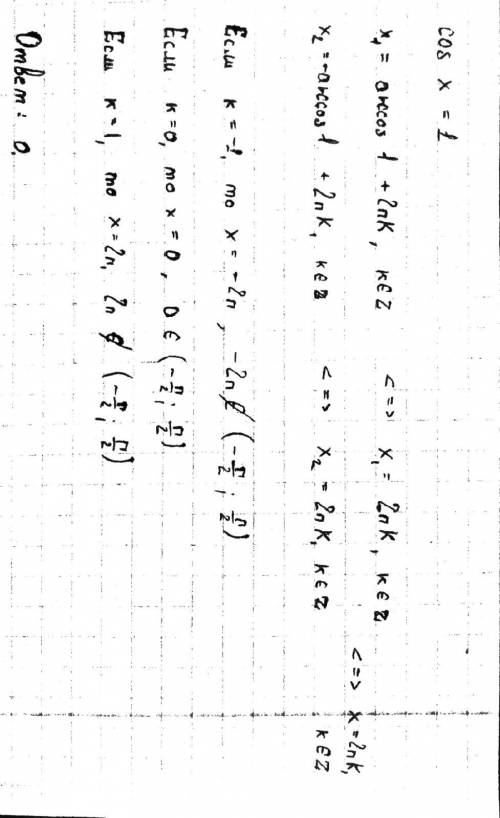 cos x = 1
x₁ = arccos 1 + 2πk, k∈Z <=> x₁ = 2πk, k∈Z
x₂ = -arccos 1 + 2πk, k∈Z <=> x₂ = 2πk, k∈Z
<=> x = 2πk, k∈Z
Если k = -1, то x = -2π, -2π ∉ (-π/2; π/2)
Если k=0, то x = 0, 0 ∈ (-π/2; π/2)
Если k=1, то x = 2π, 2π ∉ (-π/2; π/2)
Ответ: 0.